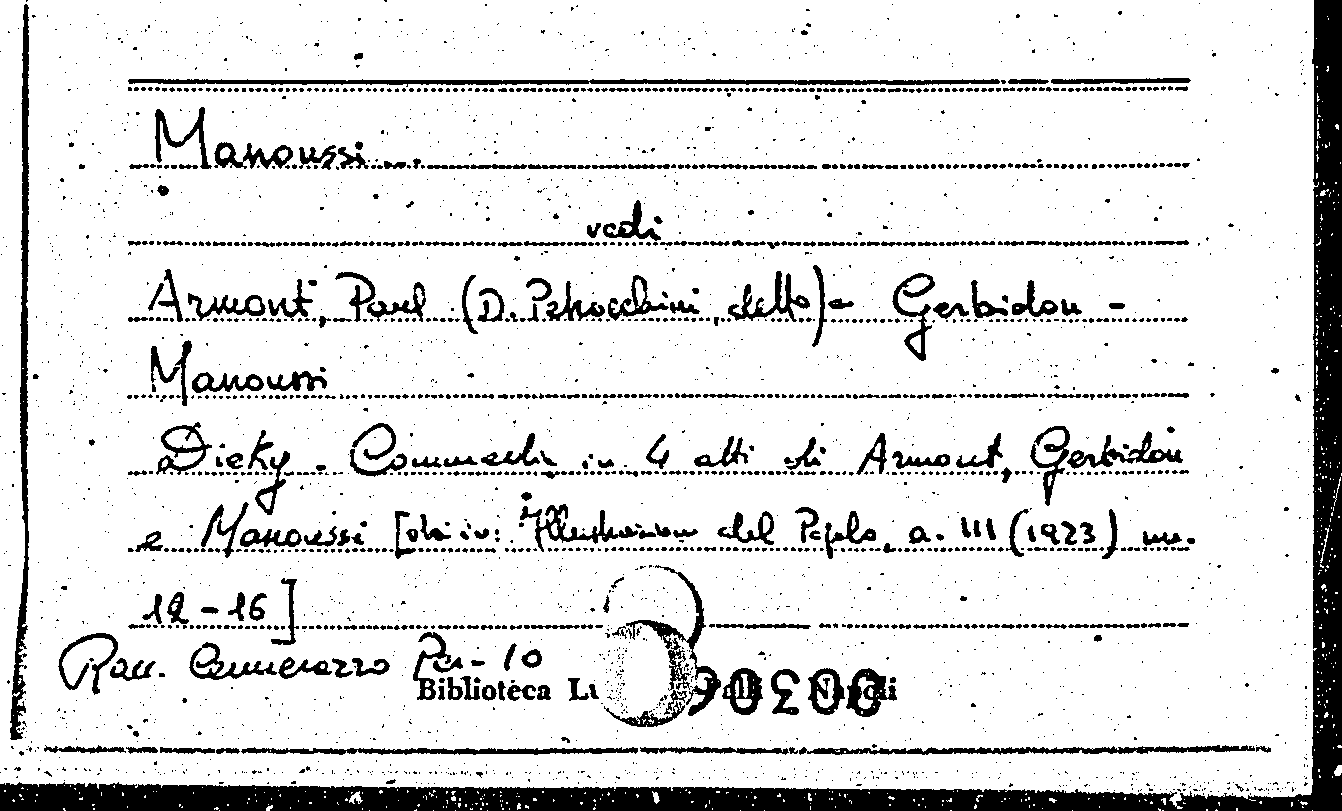 Manoussi ...
vedi
Armont, Paul (D. Petrocchini, detto) - Gerbidon -
Manoussi
Dicky. Commedia in 4 atti di Armont, Gerbidon
e Manoussi [sta in: Illustrazione del Popolo, a. III (1923) nn.
12-16]
Racc. Cammarazzo Per-10
Biblioteca Lu Napoli